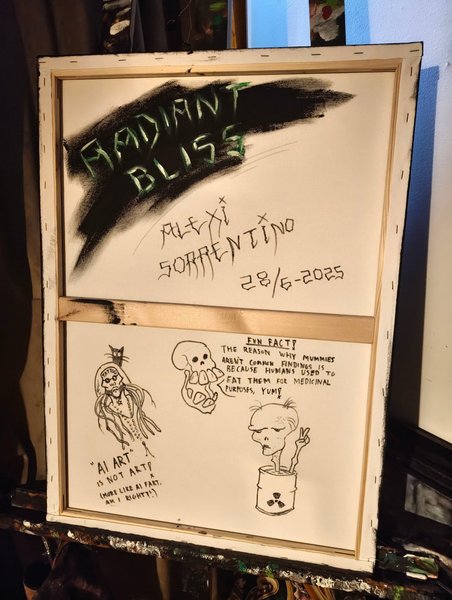 RADIANT
BLISS
ALEXI
SORRENTINO
28/6-2025
FUN FACT!
THE REASON WHY MUMMIES
AREN'T COMMON FINDINGS IS
BECAUSE HUMANS USED TO
EAT THEM FOR MEDICINAL
PURPOSES, YUM!
"AI ART"
IS NOT ART!
(MORE LIKE AI FART,
AM I RIGHT?!)